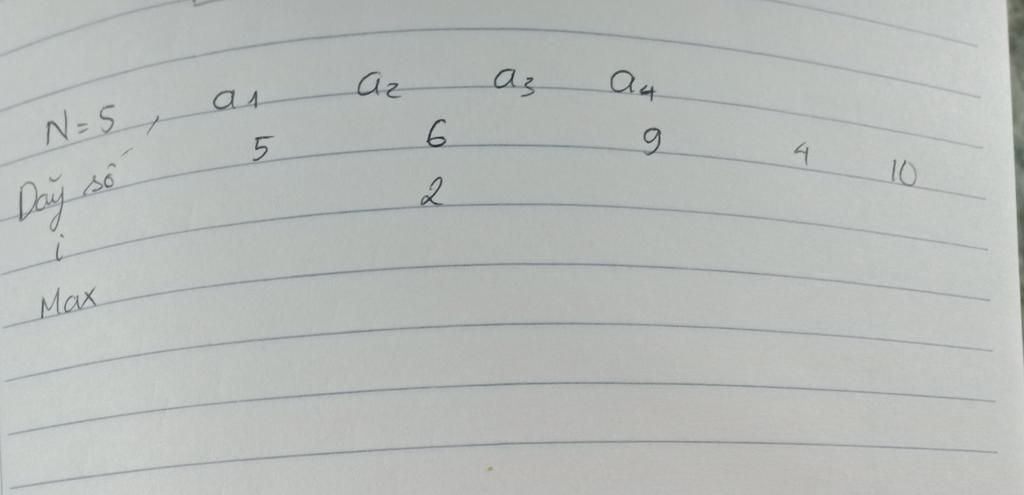 N=5, a1 a2 a3 a4
Dãy số 5 6 9 4 10
i 2
Max